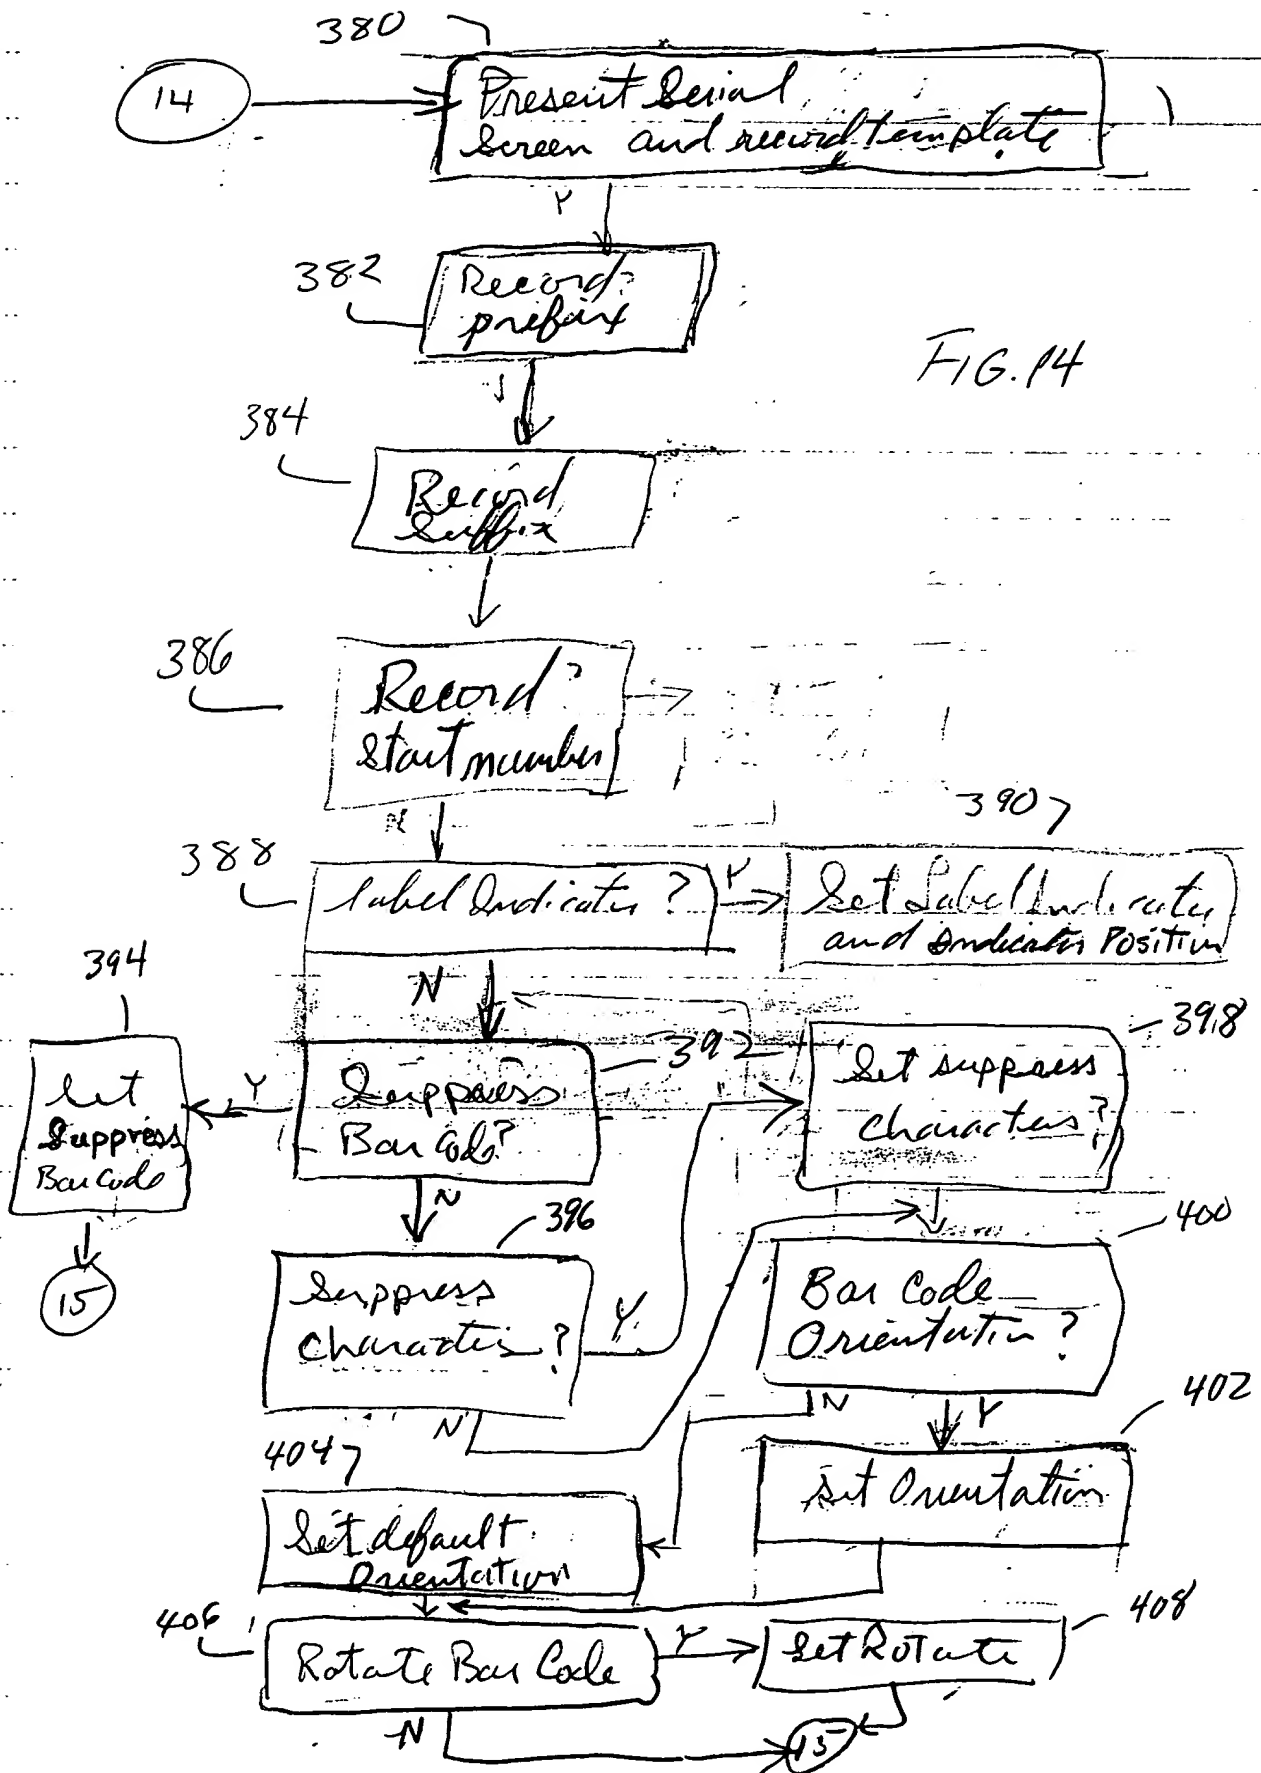 380
14
Present Serial
Screen and record template
Y
382
Record?
prefix
FIG. 14
384
Record
Suffix
386
Record?
Start number
N
390
388
Label Indicator ?
Y
Set Label Indicator
and Indicator Position
394
N
398
Set
Suppress
Bar Code
Y
Suppress
Bar Code?
392
Set suppress
characters?
N
396
400
15
Suppress
Characters ?
Y
Bar Code
Orientation ?
N
N
Y
402
404
Set default
Orientation
Set Orientation
406
408
Rotate Bar Code
Y
Set Rotate
N
15